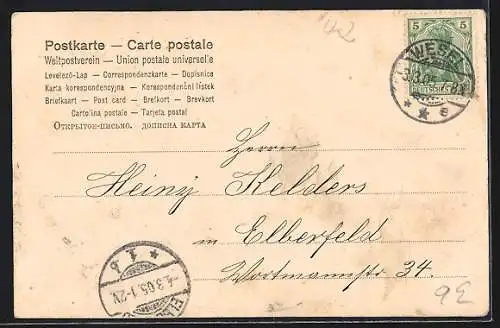 42
Postkarte — Carte postale
Weltpostverein — Union postale universelle
Levelező-Lap — Correspondenzkarte — Dopisnice
Karta korespondencyjna — Korespondenční lístek
Briefkaart — Post card — Brefkort — Brevkort
Cartolina postale — Tarjeta postal
Открытое-письмо. дописна карта
5 5
WESEL
Herrn
Heinz Kelders
in Elberfeld
Wortmannstr 34.
1 b
4.3.05.1-2N
9E